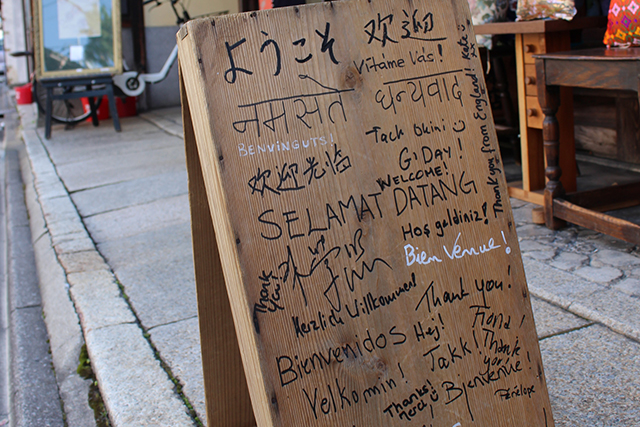 ようこそ
欢迎
Vítáme Vás!
नमस्ते
धन्यवाद
BENVINGUTS!
Tack
欢迎光临
G'DAY!
WELCOME!
SELAMAT DATANG
Thank you from England!
Hoş geldiniz!
Bien Venue!
Thank you!
Herzlich Willkommen!
Thank you!
Bienvenidos
Hej!
Takk!
Thank you!
Velkomin!
Thanks!
Bienvenue!
Pénélope